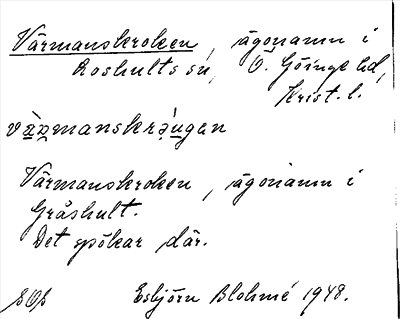 Värmanskroken, ägonamn i
Roshults sn, Ö. Göinge hd,
Krist. l.
Värmanskroken, ägonamn i
Gråshult.
Det spökar där.
Esbjörn Blohmé 1948.